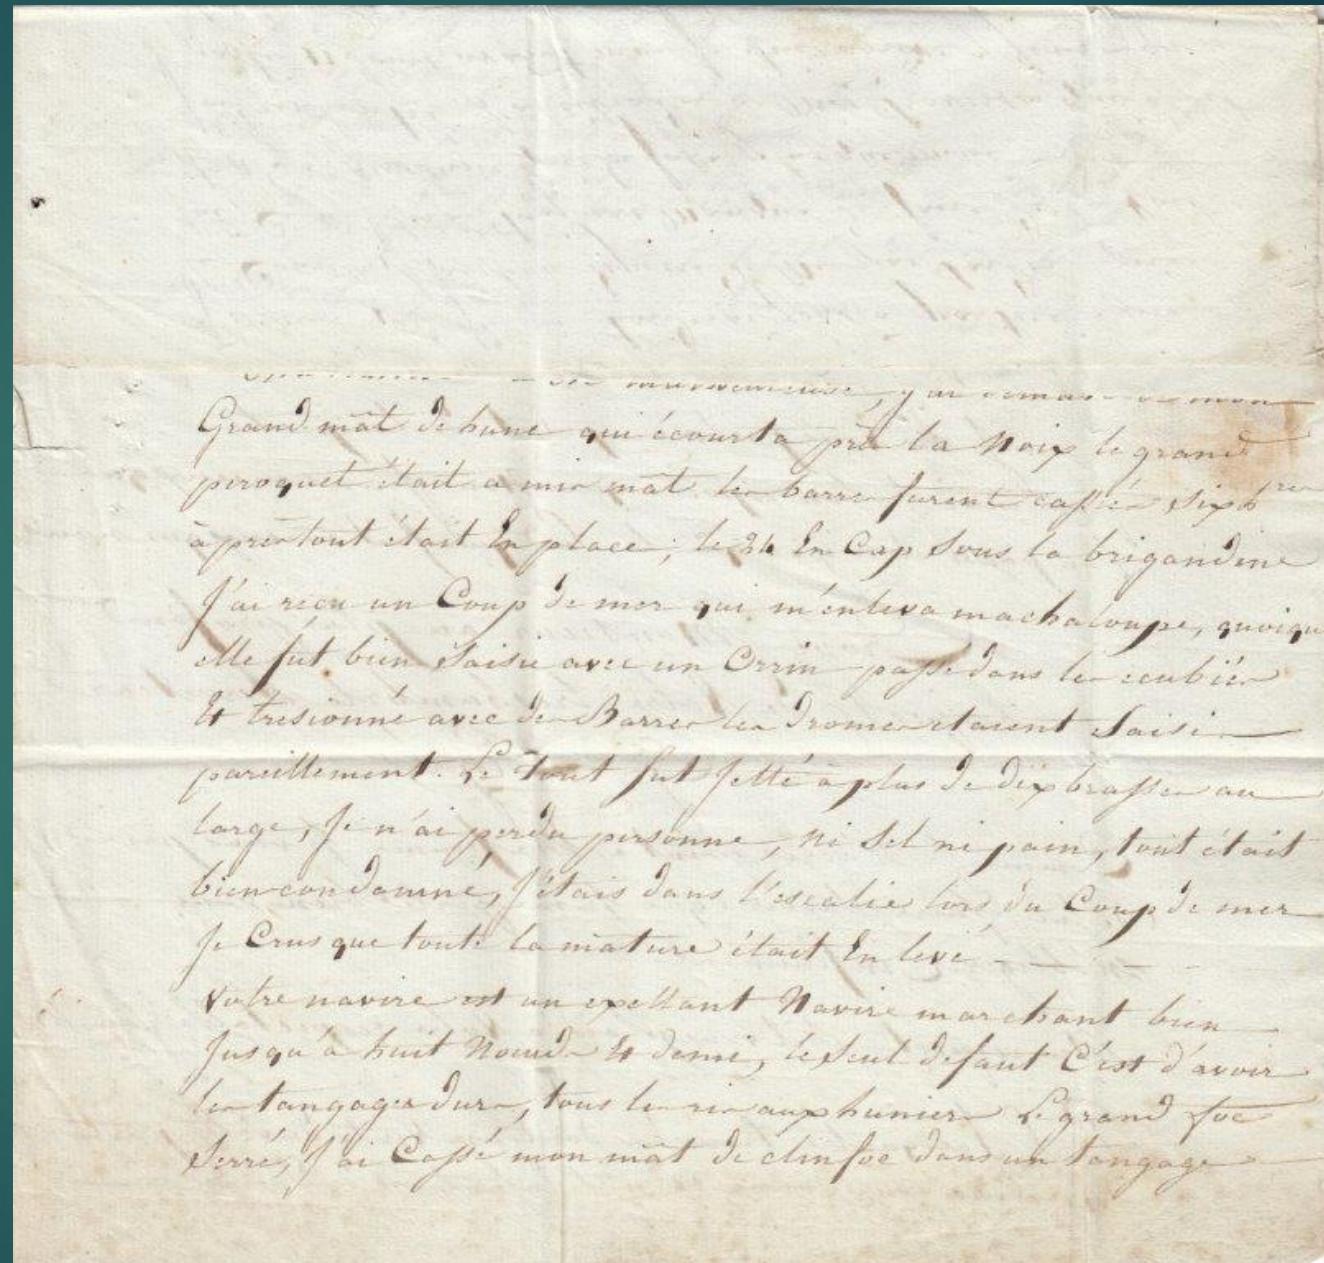 Grand mât de hune qui écourta près la Noix le grand
peroquet était a mis mât les barres furent cassés six h res
àprès tout était En place; le 24 En Cap Sous la brigandine
J'ai recu un Coup de mer qui m'enleva ma chaloupe, quoiqu
elle fut bien Saisie avec un Orrin passé dans les ecubiés
Et tresionné avec des Barres les dromes etaient Saisis
pareillement. Le tout fut jetté à plus de dix brasses au
large, Je n'ai perdu personne, ni Sel ni pain, tout était
bien condamné, J'étais dans l'escalier lors du Coup de mer
Je Crus que toute la mâture était En levé
Votre navire est un exellant Navire marchant bien
Jusqu'a huit Nouds Et demi, le Seul defaut C'est d'avoir
les tangages durs, tous les ris aux huniers Le grand foc
Serré, J'ai Cassé mon mât de clinfoc dans un tangage